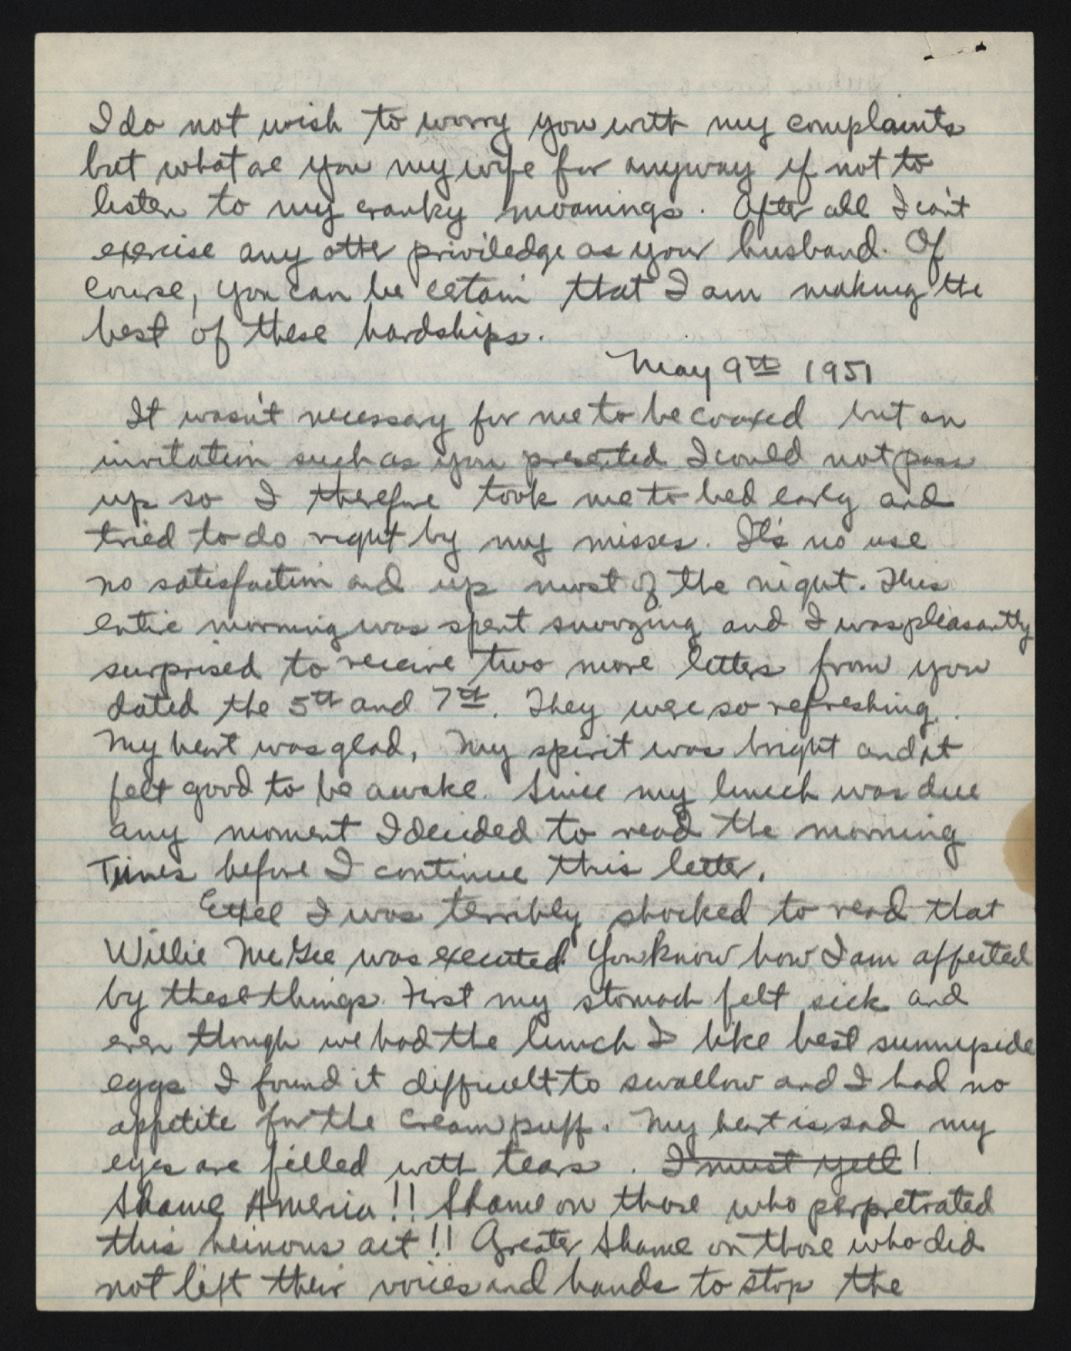 I do not wish to worry you with my complaints
but what are you my wife for anyway if not to
listen to my cranky moanings. After all I can't
exercise any other priviledge as your husband. Of
course, you can be certain that I am making the
best of these hardships.
May 9th 1951
It wasn't necessary for me to be coaxed but an
invitation such as you presented I could not pass
up so I therefore took me to bed early and
tried to do right by my misses. It's no use
no satisfaction and up most of the night. This
entire morning was spent snoozing and I was pleasantly
surprised to receive two more letters from you
dated the 5th and 7th. They were so refreshing.
My heart was glad, My spirit was bright and it
felt good to be awake. Since my lunch was due
any moment I decided to read the morning
Times before I continue this letter.
Ethel I was terribly shocked to read that
Willie McGee was executed. You know how I am affected
by these things. First my stomach felt sick and
even though we had the lunch I like best sunnyside
eggs I found it difficult to swallow and I had no
appetite for the cream puff. My heart is sad my
eyes are filled with tears. I must yell!
Shame America!! Shame on those who perpetrated
this heinous act!! Greater Shame on those who did
not lift their voices and hands to stop the